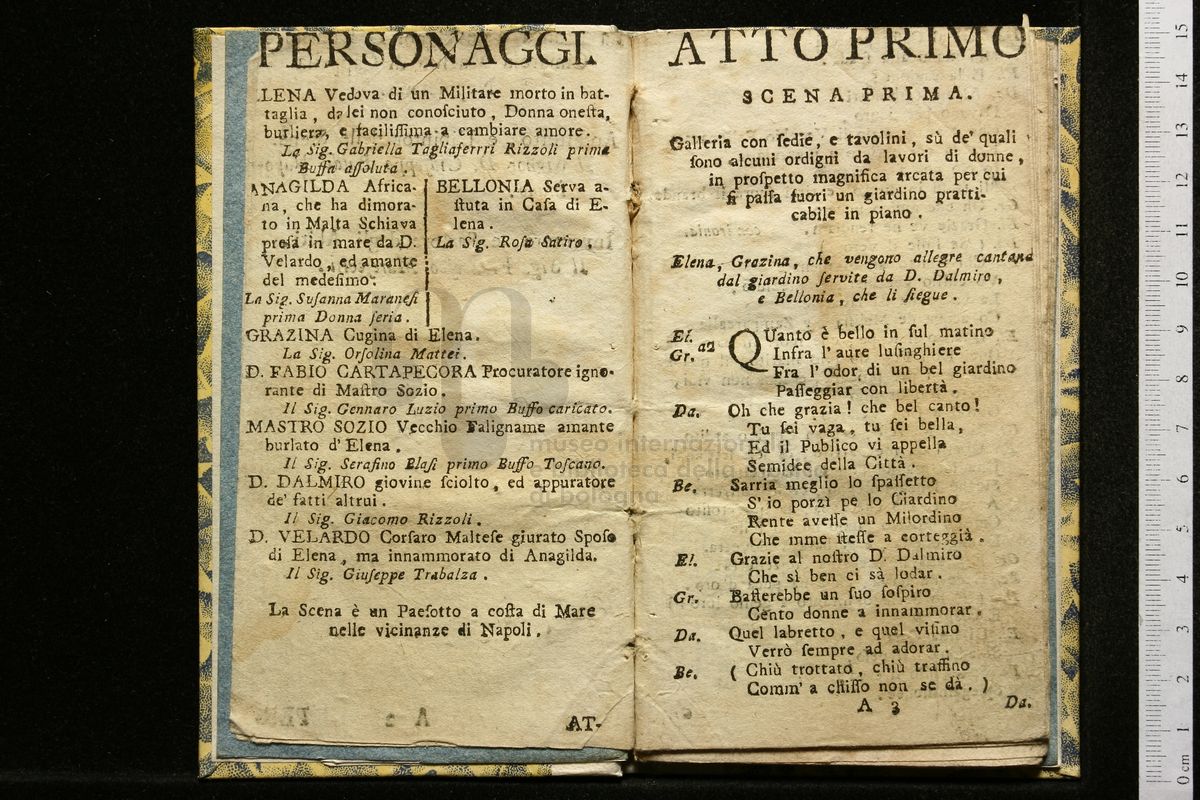 PERSONAGGI.
.LENA Vedova di un Militare morto in bat-
taglia, da lei non conosciuto, Donna onesta,
burliera, e facilissima a cambiare amore.
La Sig. Gabriella Tagliaferrri Rizzoli prima
Buffa assoluta.
ANAGILDA Africa-
na, che ha dimora-
to in Malta Schiava
presa in mare da D.
Velardo, ed amante
del medesimo.
La Sig. Susanna Maranesi
prima Donna seria.
BELLONIA Serva a-
stuta in Casa di E-
lena.
La Sig. Rosa Satiro.
GRAZINA Cugina di Elena.
La Sig. Orsolina Mattei.
D. FABIO CARTAPECORA Procuratore igno-
rante di Mastro Sozio.
Il Sig. Gennaro Luzio primo Buffo caricato.
MASTRO SOZIO Vecchio Faligname amante
burlato d' Elena.
Il Sig. Serafino Blasi primo Buffo Toscano.
D. DALMIRO giovine sciolto, ed appuratore
de' fatti altrui.
Il Sig. Giacomo Rizzoli.
D. VELARDO Corsaro Maltese giurato Sposo
di Elena, ma innammorato di Anagilda.
Il Sig. Giuseppe Trabalza.
La Scena è un Paesotto a costa di Mare
nelle vicinanze di Napoli.
AT-
ATTO PRIMO
SCENA PRIMA.
Galleria con sedie, e tavolini, sù de' quali
sono alcuni ordigni da lavori di donne,
in prospetto magnifica arcata per cui
si passa fuori un giardino pratti-
cabile in piano.
Elena, Grazina, che vengono allegre cantando
dal giardino servite da D. Dalmiro,
e Bellonia, che li siegue.
El.
Gr. a2 QUanto è bello in sul matino
Infra l' aure lusinghiere
Fra l' odor di un bel giardino
Passeggiar con libertà.
Da. Oh che grazia! che bel canto!
Tu sei vaga, tu sei bella,
Ed il Publico vi appella
Semidee della Città.
Be. Sarria meglio lo spassetto
S' io porzì pe lo Giardino
Rente avesse un Milordino
Che mme stesse a corteggià.
El. Grazie al nostro D. Dalmiro
Che sì ben ci sà lodar.
Gr. Basterebbe un suo sospiro
Cento donne a innammorar.
Da. Quel labretto, e quel visino
Verrò sempre ad adorar.
Be. ( Chiù trottato, chiù traffino
Comm' a chisso non se dà. )
A 3
Da.
museo internazionale
e biblioteca della musica
di bologna